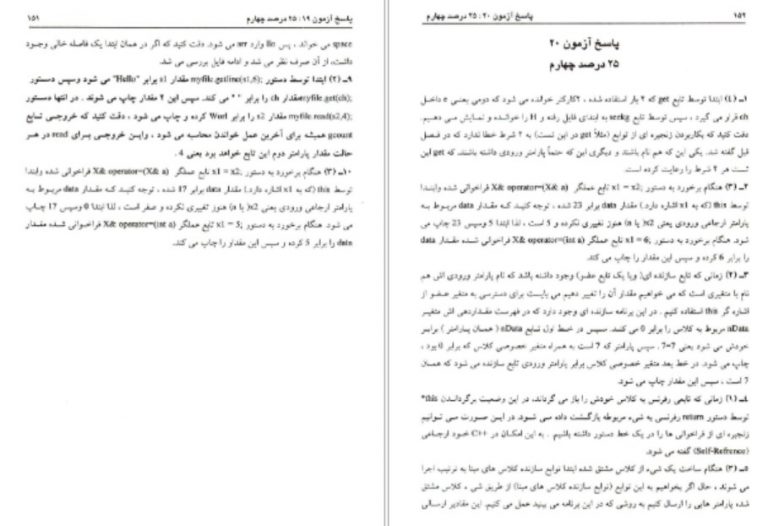 پاسخ آزمون ۲۰ : ۲۵ درصد چهارم ۱۵۲
پاسخ آزمون ۲۰
۲۵ درصد چهارم
۱ـ (٤) ابتدا توسط تابع get که ۲ بار استفاده شده ، ۲کارکتر خوانده می شود که دومی یعنـی e داخـل
ch قرار می گیرد ، سپس توسط تابع seekg به ابتدای فایل رفته و H را خوانـده و نمـایش مـی دهـیم.
دقت کنید که بکاربردن زنجیره ای از توابع (مثلاً get در این تست) به ۲ شرط خطا ندارد که در فصـل
قبل گفته شد. یکی این که هم نام باشند و دیگری این که حتماً پارامتر ورودی داشته باشند، که get این
تست هر ۲ شرط را رعایت کرده است.
۲ـ (۳) هنگام برخورد به دستور x1 = x2; تابع عملگر X& operator=(X& a) فراخوانی شده وابتـدا
توسط this (که به x1 اشاره دارد.) مقدار data برابر 23 شده ، توجه کنیـد کـه مقـدار data مربـوط بـه
پارامتر ارجاعی ورودی یعنی x2( یا a) هنوز تغییری نکرده و 5 است ، لذا ابتدا 5 وسپس 23 چاپ می
شود. هنگام برخورد به دستور x1 = 6; تابع عملگر X& operator=(int a) فراخوانی شـده مقـدار data
را برابر 6 کرده و سپس این مقدار را چاپ می کند.
۳ـ (۲) زمانی که تابع سازنده ای( ویا یک تابع عضو) وجود داشته باشد که نام پارامتر ورودی اش هم
نام با متغیری است که می خواهیم مقدار آن را تغییر دهیم می بایست برای دسترسی به متغیر عضـو از
اشاره گر this استفاده کنیم . در این برنامه سازنده ای وجود دارد که در فهرست مقـداردهی اش متغیـر
nData مربوط به کلاس را برابر 0 می کنند. سـپس در خـط اول تـابع nData ( همـان پـارامتر ) برابـر
خودش می شود یعنی 7=7 . سپس پارامتر که 7 است به همراه متغیر خصوصی کلاس که برابر 0 بود ،
چاپ می شود. در خط بعد متغیر خصوصی کلاس برابر پارامتر ورودی تابع سازنده می شود که همـان
7 است ، سپس این مقدار چاپ می شود.
٤ـ (۱) زمانی که تابعی رفرنس به کلاس خودش را باز می گرداند، در این وضعیت برگردانـدن this*
توسط دستور return رفرنسی به شیء مربوطه بازگشت داده مـی شـود. در ایـن صـورت مـی تـوانیم
زنجیره ای از فراخوانی ها را در یک خط دستور داشته باشیم . به این امکـان در C++ خـود ارجـاعی
(Self-Refrence) گفته می شود.
۵ـ (۳) هنگام ساخت یک شیء از کلاس مشتق شده ابتدا توابع سازنده کلاس های مبنا به ترتیب اجرا
می شوند ، حال اگر بخواهیم به این توابع (توابع سازنده کلاس های مبنا) از طریق شی ، کلاس مشتق
شده پارامتر هایی را ارسال کنیم به روشی که در این برنامه می بینید عمل می کنیم. این مقادیر ارسـالی
پاسخ آزمون ۱۹ : ۲۵ درصد چهارم ۱۵۱
space می خواند ، پس llo وارد arr می شود. دقت کنید که اگر در همان ابتدا یک فاصله خالی وجـود
داشت، از آن صرف نظر می شد و ادامه فایل بررسی می شد.
۹ـ (۲) ابتدا توسط دستور myfile.getline(s1,6); مقدار s1 برابر "Hello" می شود وسپس دسـتور
myfile.get(ch); مقدار ch را برابر " " می کند. سپس این ۲ مقدار چاپ می شوند . در انتها دسـتور
myfile.read(s2,4); مقدار s2 را برابر Word کرده و چاپ می شود ، دقت کنید که خروجـی تـابع
gcount همیشه برای آخرین عمل خواندن محاسبه می شود ، وایـن خروجـی بـرای read در هـر
حالت مقدار پارامتر دوم این تابع خواهد بود یعنی 4 .
۱۰ـ (۳) هنگام برخورد به دستور x1 = x2; تابع عملگر X& operator=(X& a) فراخوانی شده وابتدا
توسط this (که به x1 اشاره دارد.) مقدار data برابر 17 شده ، توجه کنیـد کـه مقـدار data مربـوط بـه
پارامتر ارجاعی ورودی یعنی x2( یا a) هنوز تغییری نکرده و صفر است ، لذا ابتدا 0 وسپس 17 چـاپ
می شود. هنگام برخورد به دستور x1 = 5; تابع عملگر X& operator=(int a) فراخـوانی شـده مقـدار
data را برابر 5 کرده و سپس این مقدار را چاپ می کند.